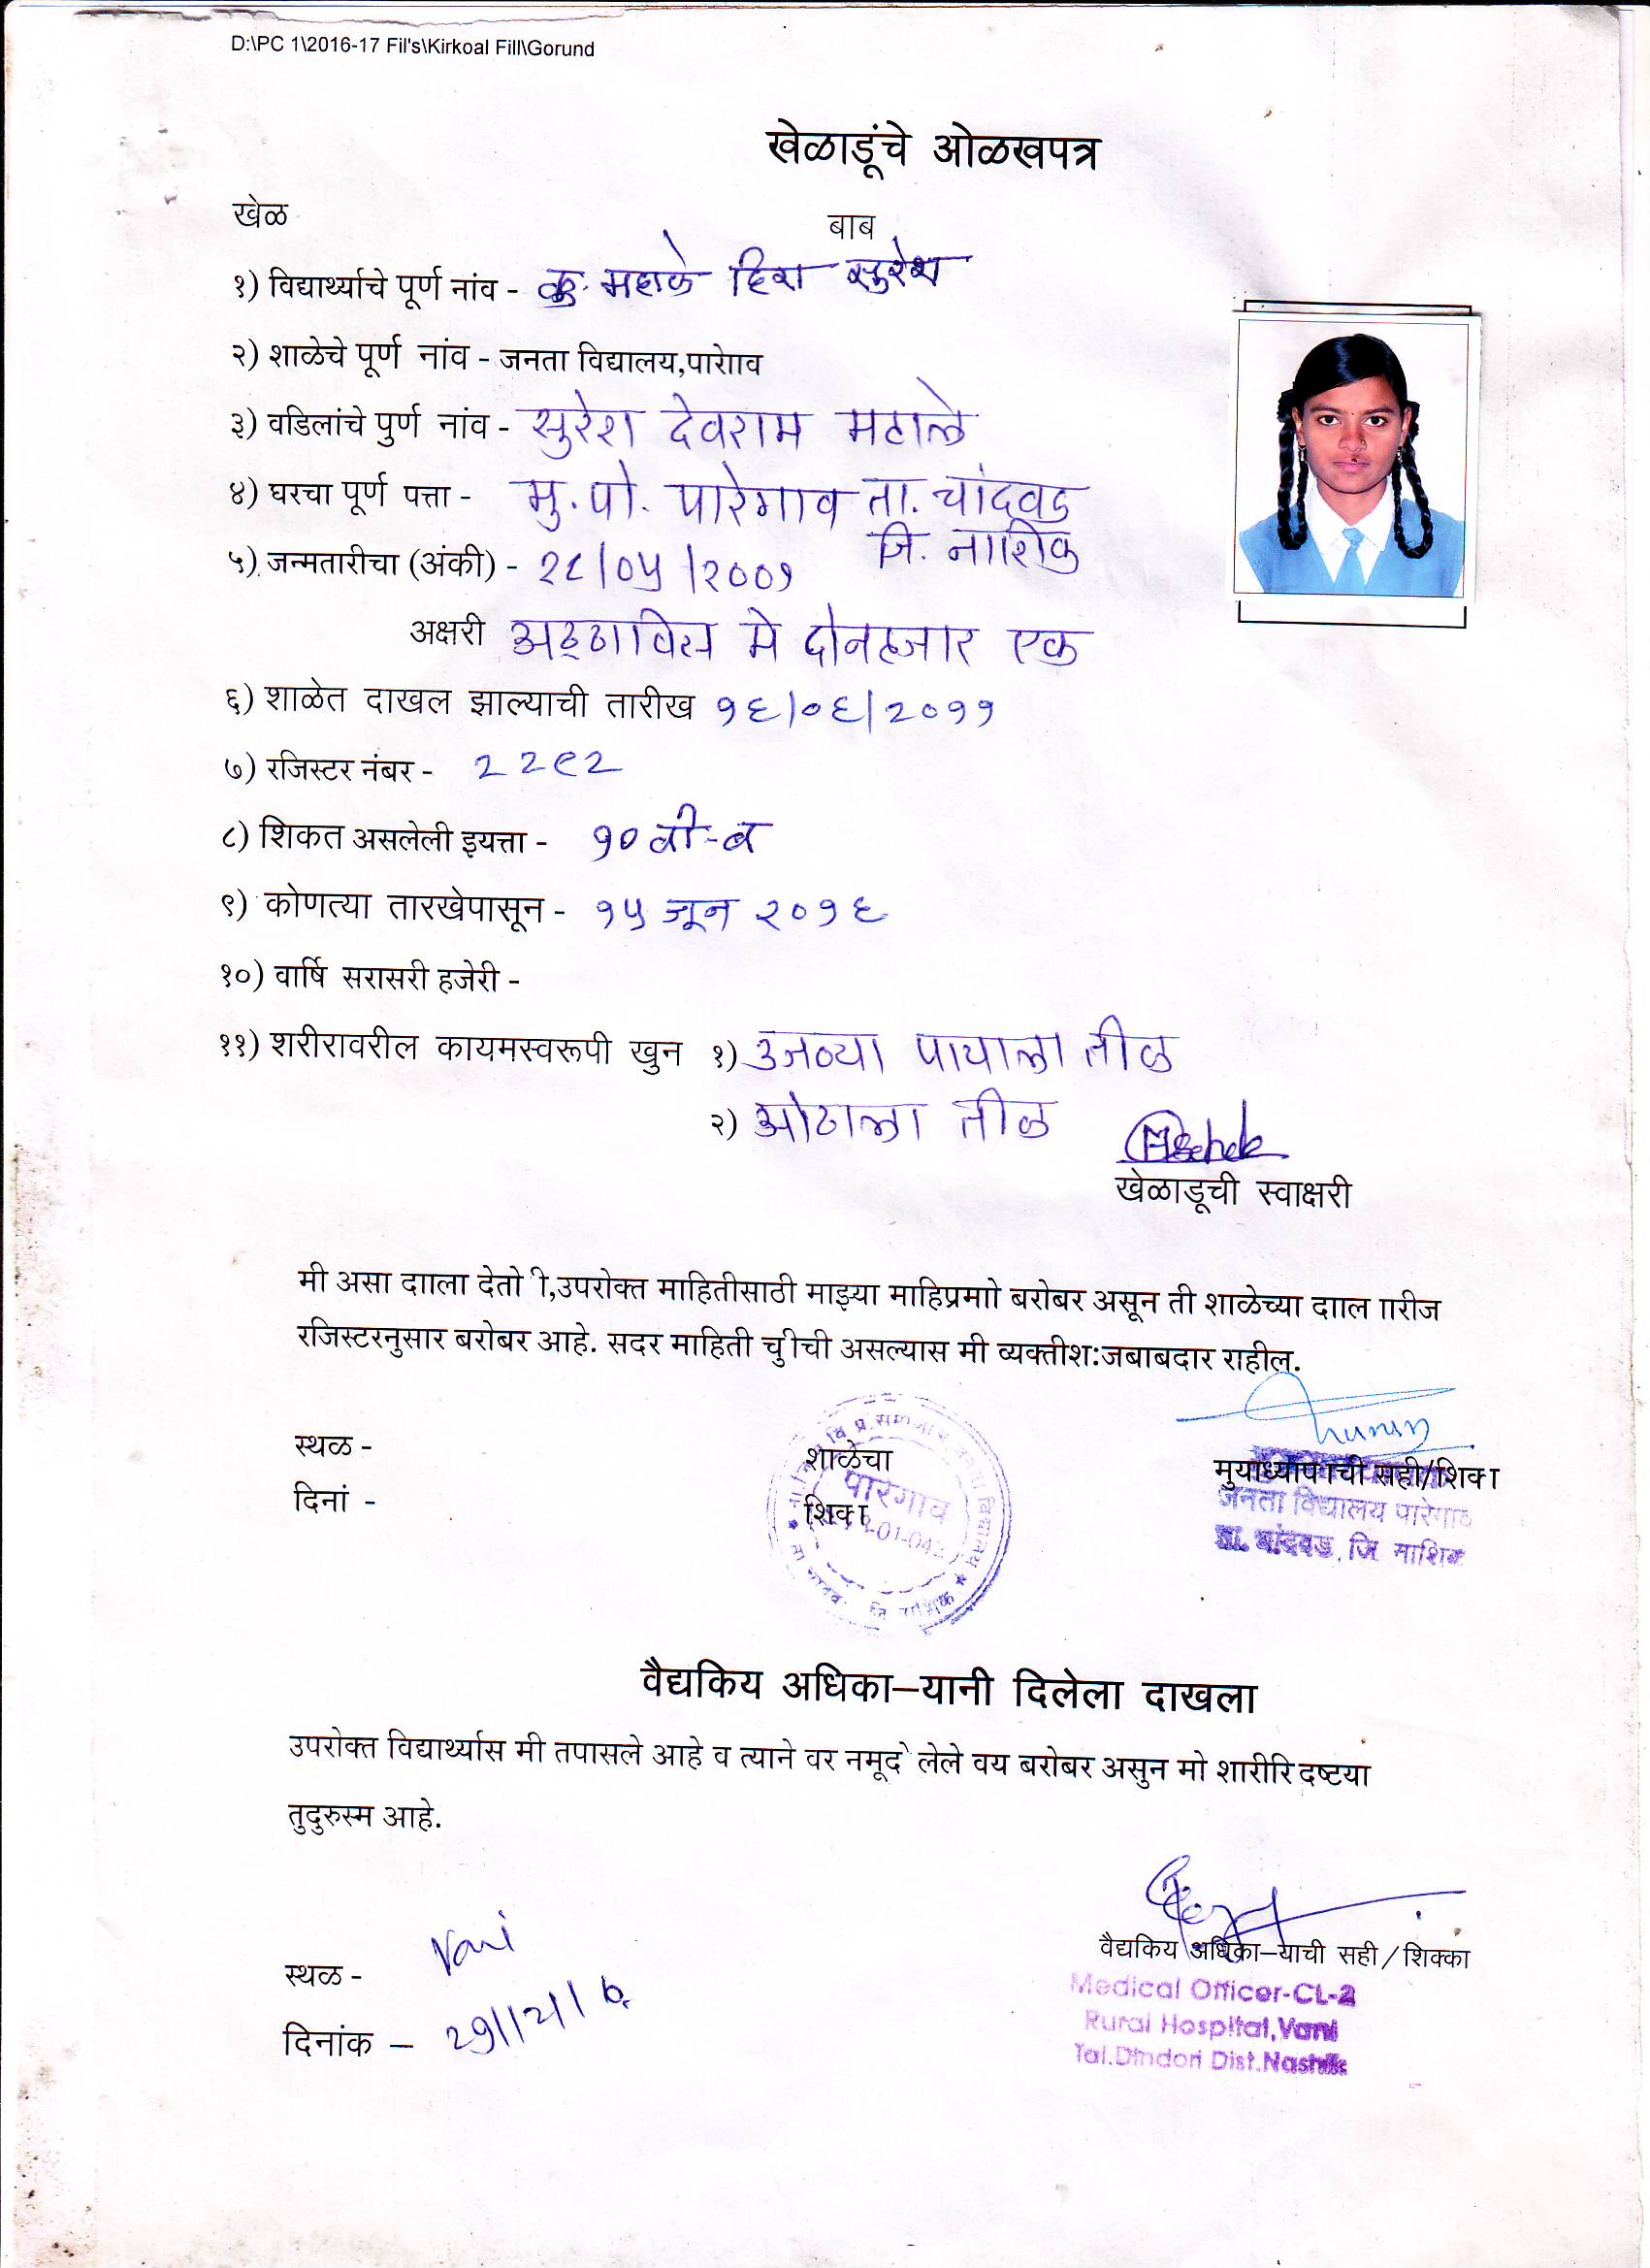 D:\PC 1\2016-17 Fil's\Kirkoal Fill\Gorund
खेळाडूंचे ओळखपत्र
खेळ
बाब
१) विद्यार्थ्याचे पूर्ण नांव - कु. सुरेश
२) शाळेचे पूर्ण नांव - जनता विद्यालय,पारेगाव
३) वडिलांचे पुर्ण नांव - सुरेश देवराम मठाले
४) घरचा पूर्ण पत्ता - मु.पो. पारेगाव ता. चांदवड
जि. नाशिक
५) जन्मतारीचा (अंकी) - २८/०५/२००१
अक्षरी अठ्ठाविस मे दोनहजार एक
६) शाळेत दाखल झाल्याची तारीख १६/०६/२०११
७) रजिस्टर नंबर - २२९२
८) शिकत असलेली इयत्ता - १० वी-ब
९) कोणत्या तारखेपासून - १५ जून २०१६
१०) वार्षि सरासरी हजेरी -
११) शरीरावरील कायमस्वरूपी खुन १) उजव्या पायाला तीळ
२) ओठाला तीळ
खेळाडूची स्वाक्षरी
मी असा दााला देतो ी,उपरोक्त माहितीसाठी माझ्या माहिप्रमाो बरोबर असून ती शाळेच्या दााल ाारीज
रजिस्टरनुसार बरोबर आहे. सदर माहिती चुीची असल्यास मी व्यक्तीश:जबाबदार राहील.
स्थळ -
शाळेचा
पारेगाव
मुयाध्यापाची सही/शिका
दिनां -
शिका
जनता विद्यालय पारेगाव
ता. चांदवड, जि. नाशिक
वैद्यकिय अधिका–यानी दिलेला दाखला
उपरोक्त विद्यार्थ्यास मी तपासले आहे व त्याने वर नमूद े लेले वय बरोबर असुन मो शारीरि दष्टया
तुदुरुस्म आहे.
वैद्यकिय अधिका–याची सही / शिक्का
स्थळ - Vani
Medical Officer-CL-2
Rural Hospital,Vani
दिनांक – 29/12/16
Tal.Dindori Dist.Nashik